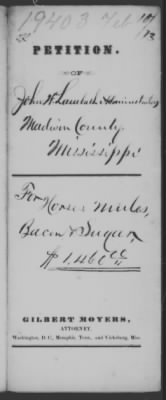 19403 Feb
PETITION.
OF
John W Administrator
Madison County
Mississippi
For
Horses Mules,
Bacon & Sugar,
GILBERT MOYERS,
ATTORNEY,
Washington, D. C., Memphis Tenn., and Vicksburg, Miss.